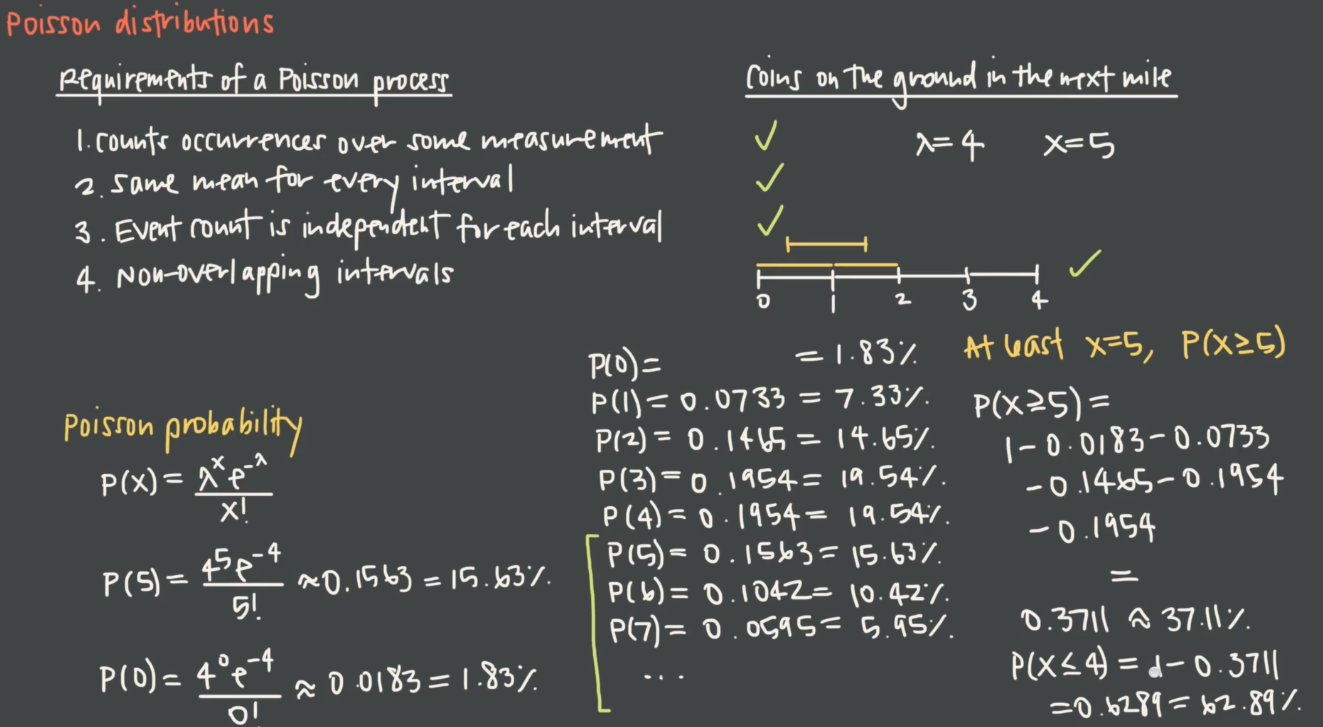 Poisson distributions
Requirements of a Poisson process
1. Counts occurrences over some measurement
2. Same mean for every interval
3. Event count is independent for each interval
4. Non-overlapping intervals
Coins on the ground in the next mile
λ=4 x=5
0 1 2 3 4
Poisson probability
P(x) = λˣe⁻λ / x!
P(5) = 4⁵e⁻⁴ / 5! ≈ 0.1563 = 15.63%.
P(0) = 4⁰e⁻⁴ / 0! ≈ 0.0183 = 1.83%.
P(0) = = 1.83%
P(1) = 0.0733 = 7.33%.
P(2) = 0.1465 = 14.65%.
P(3) = 0.1954 = 19.54%.
P(4) = 0.1954 = 19.54%.
P(5) = 0.1563 = 15.63%.
P(6) = 0.1042 = 10.42%.
P(7) = 0.0595 = 5.95%.
...
At least x=5, P(x≥5)
P(x≥5) =
1-0.0183-0.0733
-0.1465-0.1954
-0.1954
=
0.3711 ≈ 37.11%.
P(x≤4) = 1-0.3711
=0.6289=62.89%.